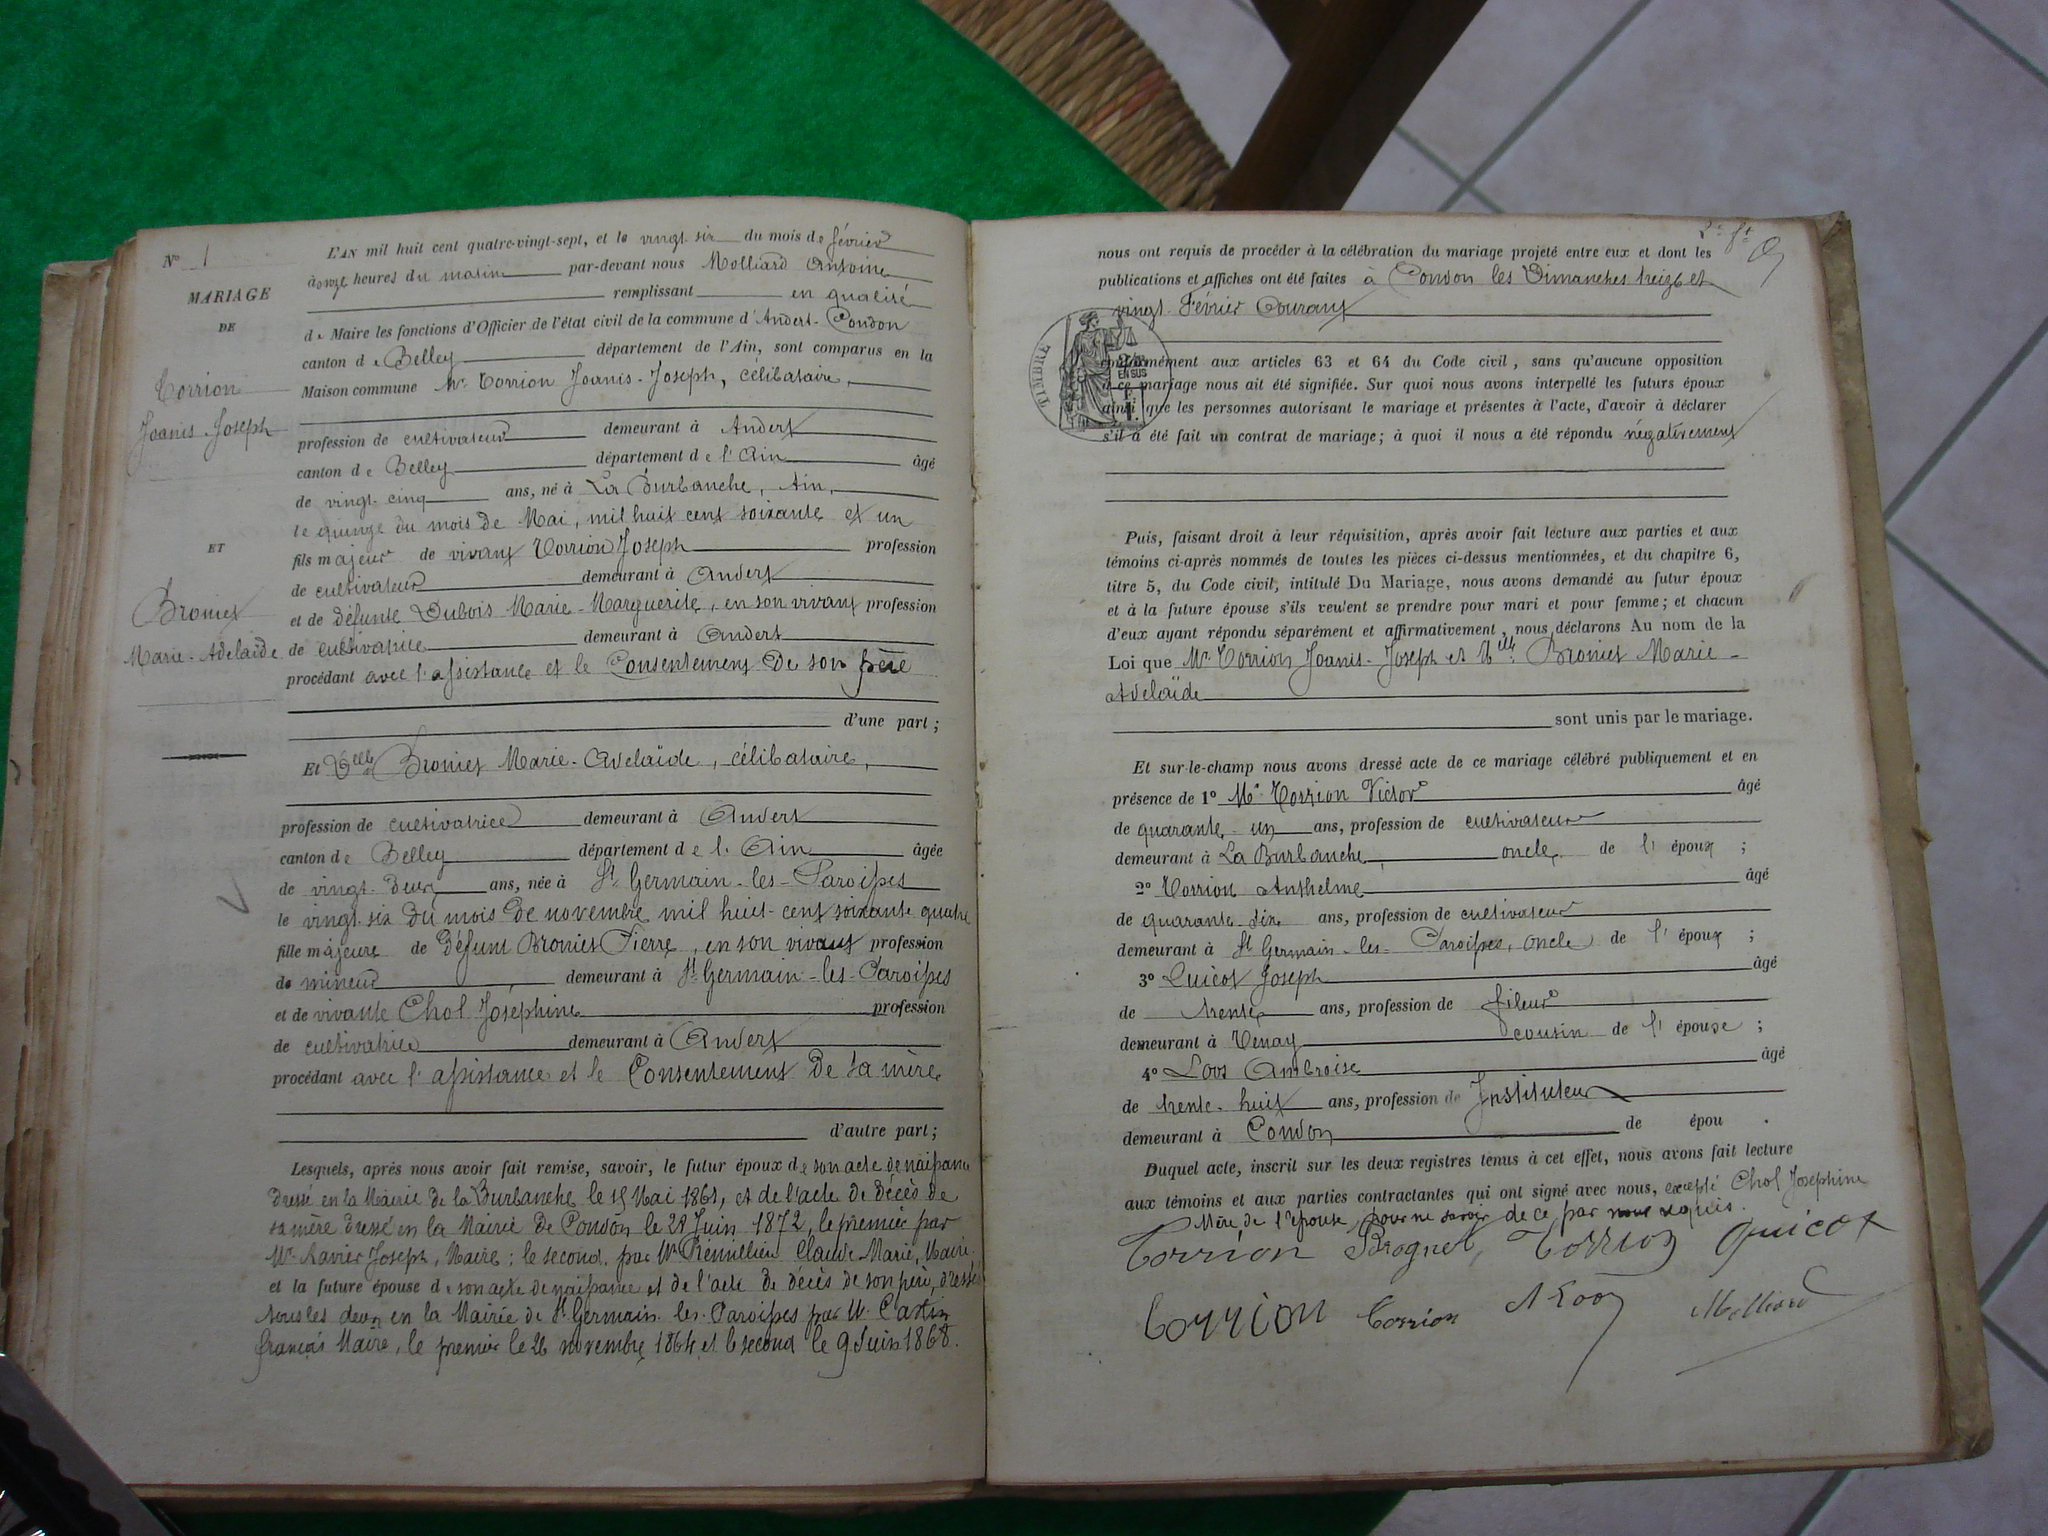 N° 1
MARIAGE
DE
Corrion
Joanis-Joseph
ET
Broniet
Marie-Adelaïde
L'AN mil huit cent quatre-vingt-sept, et le vingt six du mois de février
à onze heures du matin par-devant nous Molliard Antoine
remplissant en qualité
de Maire les fonctions d'Officier de l'état civil de la commune d'Andert-Condon
canton de Belley département de l'Ain, sont comparus en la
Maison commune Mr Corrion Joanis-Joseph, célibataire,
profession de cultivateur demeurant à Andert
canton de Belley département de l'Ain âgé
de vingt-cinq ans, né à La Burbanche, Ain,
le quinze du mois de Mai, mil huit cent soixante et un
fils majeur de vivant Corrion Joseph profession
de cultivateur demeurant à Andert
et de défunte Dubois Marie-Marguerite, en son vivant profession
de cultivatrice demeurant à Andert
procédant avec l'assistance et le Consentement de son père
d'une part ;
Et Delle Broniet Marie-Adelaïde, célibataire,
profession de cultivatrice demeurant à Andert
canton de Belley département de l'Ain âgée
de vingt-deux ans, née à St Germain-les-Paroisses
le vingt-six du mois de novembre mil huit-cent soixante quatre
fille majeure de défunt Broniet Pierre, en son vivant profession
de mineur demeurant à St Germain-les-Paroisses
et de vivante Chol Joséphine profession
de cultivatrice demeurant à Andert
procédant avec l'assistance et le Consentement de sa mère
d'autre part ;
Lesquels, après nous avoir fait remise, savoir, le futur époux de son acte de naissance
dressé en la Mairie de la Burbanche le 15 Mai 1861, et de l'acte de décès de
sa mère dressé en la Mairie de Condon le 28 Juin 1872, le premier par
Mr Ravier Joseph, Maire ; le second par Mr Claude Marie, Maire
et la future épouse de son acte de naissance et de l'acte de décès de son père, dressés
tous les deux en la Mairie de St Germain-les-Paroisses par M.
françois Maire, le premier le 26 novembre 1864 et le second le 9 Juin 1868.
nous ont requis de procéder à la célébration du mariage projeté entre eux et dont les
publications et affiches ont été faites à Condon les Dimanches treize et
vingt Février Courant
TIMBRE
EN SUS
conformément aux articles 63 et 64 du Code civil, sans qu'aucune opposition
à ce mariage nous ait été signifiée. Sur quoi nous avons interpellé les futurs époux
ainsi que les personnes autorisant le mariage et présentes à l'acte, d'avoir à déclarer
s'il a été fait un contrat de mariage ; à quoi il nous a été répondu négativement
Puis, faisant droit à leur réquisition, après avoir fait lecture aux parties et aux
témoins ci-après nommés de toutes les pièces ci-dessus mentionnées, et du chapitre 6,
titre 5, du Code civil, intitulé Du Mariage, nous avons demandé au futur époux
et à la future épouse s'ils veulent se prendre pour mari et pour femme ; et chacun
d'eux ayant répondu séparément et affirmativement, nous déclarons Au nom de la
Loi que Mr Corrion Joanis-Joseph et Melle Broniet Marie-
Adelaïde
sont unis par le mariage.
Et sur-le-champ nous avons dressé acte de ce mariage célébré publiquement et en
présence de 1° Mr Corrion Victor âgé
de quarante-un ans, profession de cultivateur
demeurant à La Burbanche, oncle de l'époux ;
2° Corrion Anthelme âgé
de quarante-six ans, profession de cultivateur
demeurant à St Germain-les-Paroisses, oncle de l'époux ;
3° Quicot Joseph âgé
de trente ans, profession de fileur
demeurant à Tenay cousin de l'épouse ;
4° Loos Ambroise âgé
de trente-huit ans, profession de Instituteur
demeurant à Condon de épou .
Duquel acte, inscrit sur les deux registres tenus à cet effet, nous avons fait lecture
aux témoins et aux parties contractantes qui ont signé avec nous, excepté Chol Joséphine
Mère de l'épouse, pour ne savoir de ce par nous requis.
Corrion Brognet, Corrion Quicot
Corrion Corrion A Loos Molliard